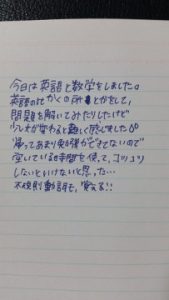 今日は英語と数学をしました。
英語の比かくの所とかをして、
問題を解いてみたりしたけど
少し形が変わると難しく感じました
帰ってあまり勉強ができてないので
空いている時間を使って、コツコツ
しないといけないと思った…
不規則動詞も、覚える!!